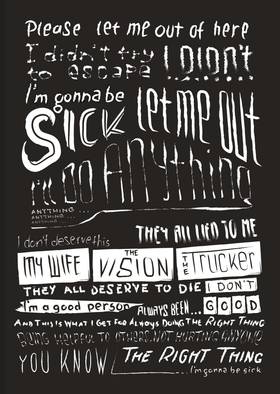 Please let me out of here
I didn't try I Didn't
to escape
I'm gonna be
Sick let me out
I'll do Anything
ANYTHING...
ANYTHING...
ANYTHING...
I don't deserve this THEY All LIED TO ME
MY WIFE THE VISION THE TRUCKER
THEY ALL DESERVE TO DIE I DON'T
I'm a good person ALWAYS BEEN... GOOD
AND THIS IS WHAT I GET FOR ALWAYS DOING THE RIGHT THING
BEING HELPFUL TO OTHERS, NOT HURTING ANYONE
YOU KNOW THE RIGHT THING
I'm gonna be sick